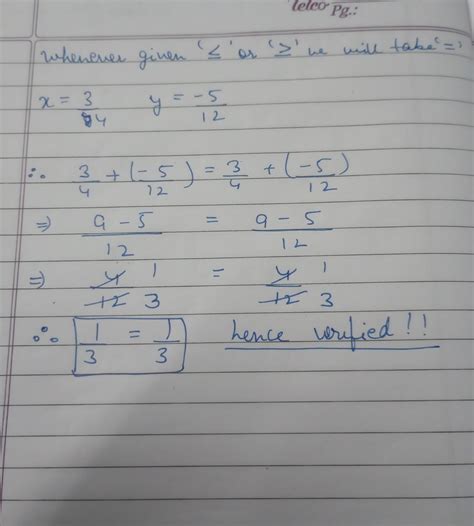 telco Pg.:
whenever given '≤' or '≥' we will take '='
x = 3/4 y = -5/12
∴ 3/4 + (-5/12) = 3/4 + (-5/12)
⇒ 9 - 5/12 = 9 - 5/12
⇒ 4/12 1/3 = 4/12 1/3
∴ 1/3 = 1/3 hence verified!!